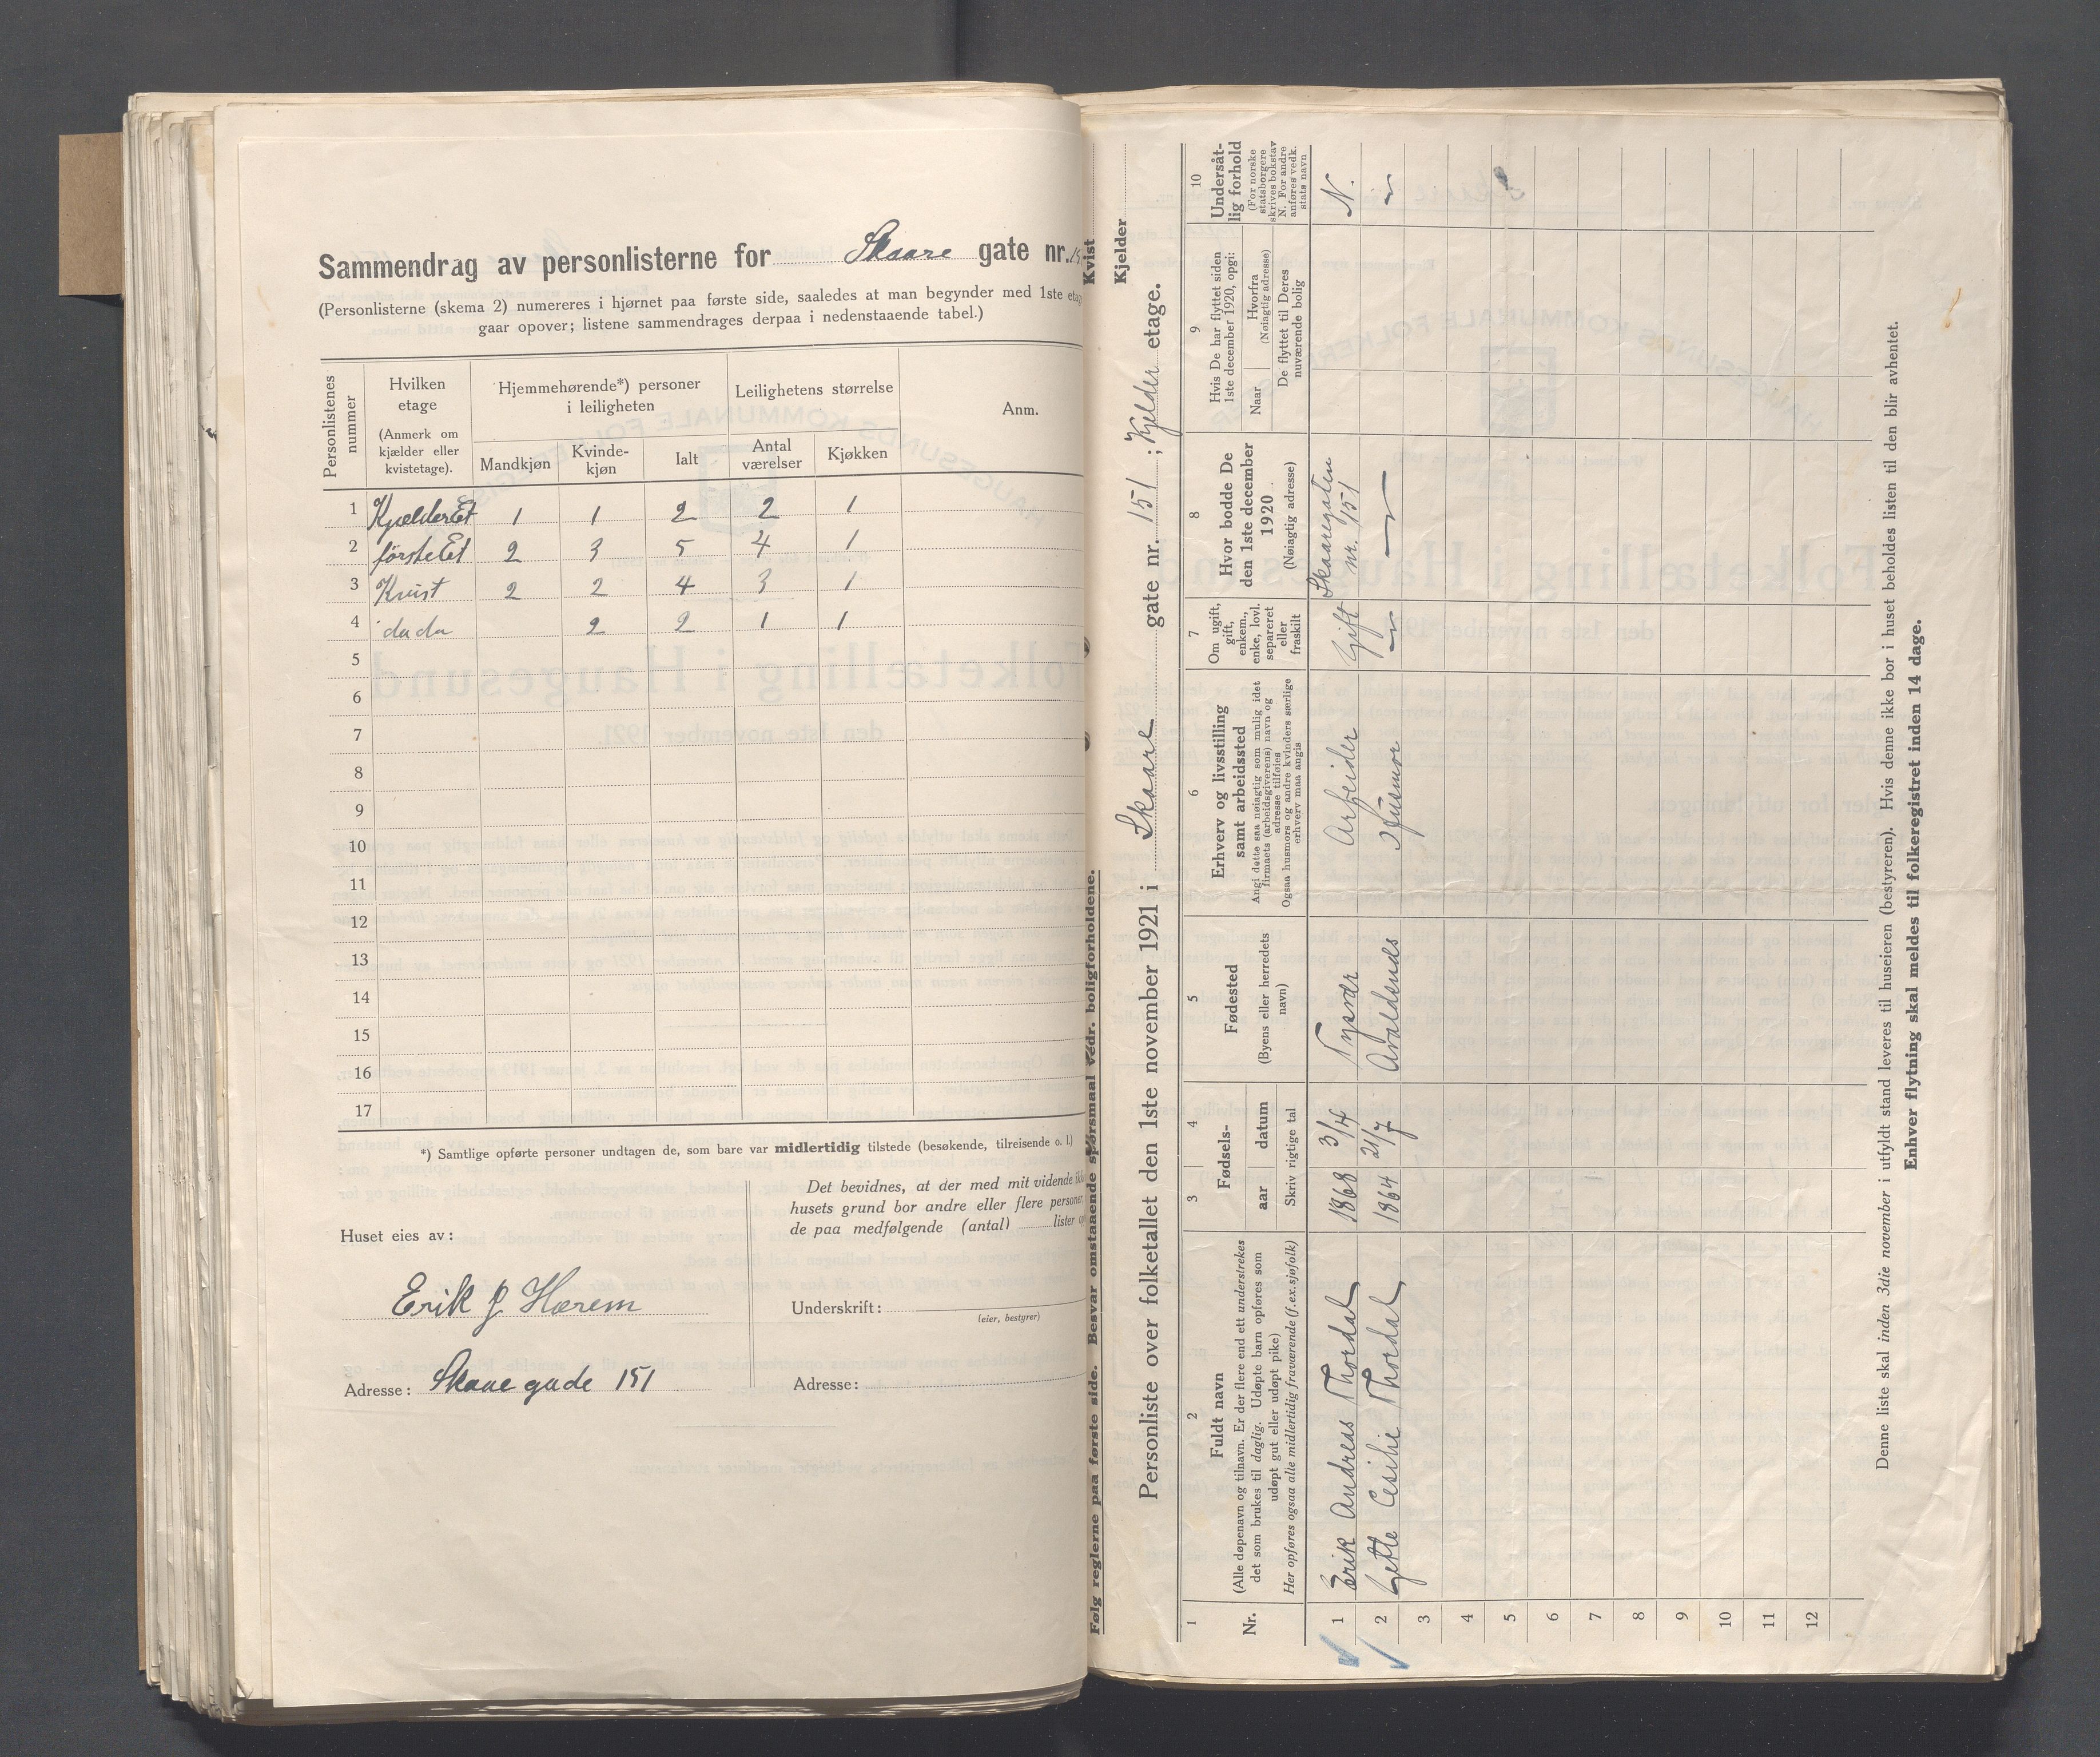 Sammendrag av personlisterne for Skaare gate nr.
(Personlisterne (skema 2) numereres i hjørnet paa første side, saaledes at man begynder med 1ste
gaar opover; listene sammendrages derpaa i nedenstaaende tabel.)
Personlistenes nummer
Hvilken etage
(Anmerk om kjælder eller kvistetage).
Hjemmehørende*) personer i leiligheten
Leilighetens størrelse
Anm.
Mandkjøn
Kvinde-kjøn
Ialt
Antal værelser
Kjøkken
1 KjælderEt 1 1 2 2 1
2 første Et 2 3 5 4 1
3 Kvist 2 2 4 3 1
4 da da 2 2 1 1
5
6
7
8
9
10
11
12
13
14
15
16
17
*) Samtlige opførte personer undtagen de, som bare var midlertidig tilstede (besøkende, tilreisende o. l.)
Huset eies av:
Erik J Hærem
Adresse: Skaaregade 151
Det bevidnes, at der med mit vidende
husets grund bor andre eller flere personer,
de paa medfølgende (antal) lister
Underskrift:
(eier, bestyrer)
Adresse:
Følg reglerne paa første side. Besvar omstaaende spørsmaal vedr. boligforholdene.
Kvist
Kjelder
Personliste over folketallet den 1ste november 1921 i Skaare gate nr. 151; Kjelder etage.
1
Nr.
2
Fuldt navn
(Alle døpenavn og tilnavn. Er der flere end ett understrekes
det som brukes til daglig. Udøpte barn opføres som
udøpt gut eller udøpt pike)
Her opføres ogsaa alle midlertidig fraværende (f.ex.sjøfolk)
3 4
Fødsels-
aar datum
Skriv rigtige tal
5
Fødested
(Byens eller herredets
navn)
6
Erhverv og livsstilling
samt arbeidssted
Angi dette saa nøiagtig som mulig idet
firmaets (arbeidsgiverens) navn og
adresse tilføies
Ogsaa husmors og andre kvinders særlige
erhverv maa angis
7
Om ugift,
gift,
enkem.,
enke, lovl.
separeret
eller
fraskilt
8
Hvor bodde De
den 1ste december
1920
(Nøiagtig adresse)
9
Hvis De har flyttet siden
1ste december 1920, opgi:
Naar
Hvorfra
(Nøiagtig adresse)
De flyttet til Deres
nuværende bolig
10
Undersåt-
lig forhold
(For norske
statsborgere
skrives bokstav
N. For andre
anføres vedk.
stats navn
1 Erik Andreas Thordal 1868 3/4 Tysvær Arbeider Gift Skaaregaten nr. 151 N.
2 Gjette Cesilie Thordal 1864 21/7 Avaldsnds Husmor
3
4
5
6
7
8
9
10
11
12
Denne liste skal inden 3die november i utfyldt stand leveres til huseieren (bestyreren). Hvis denne ikke bor i huset beholdes listen til den blir avhentet.
Enhver flytning skal meldes til folkeregistret inden 14 dage.